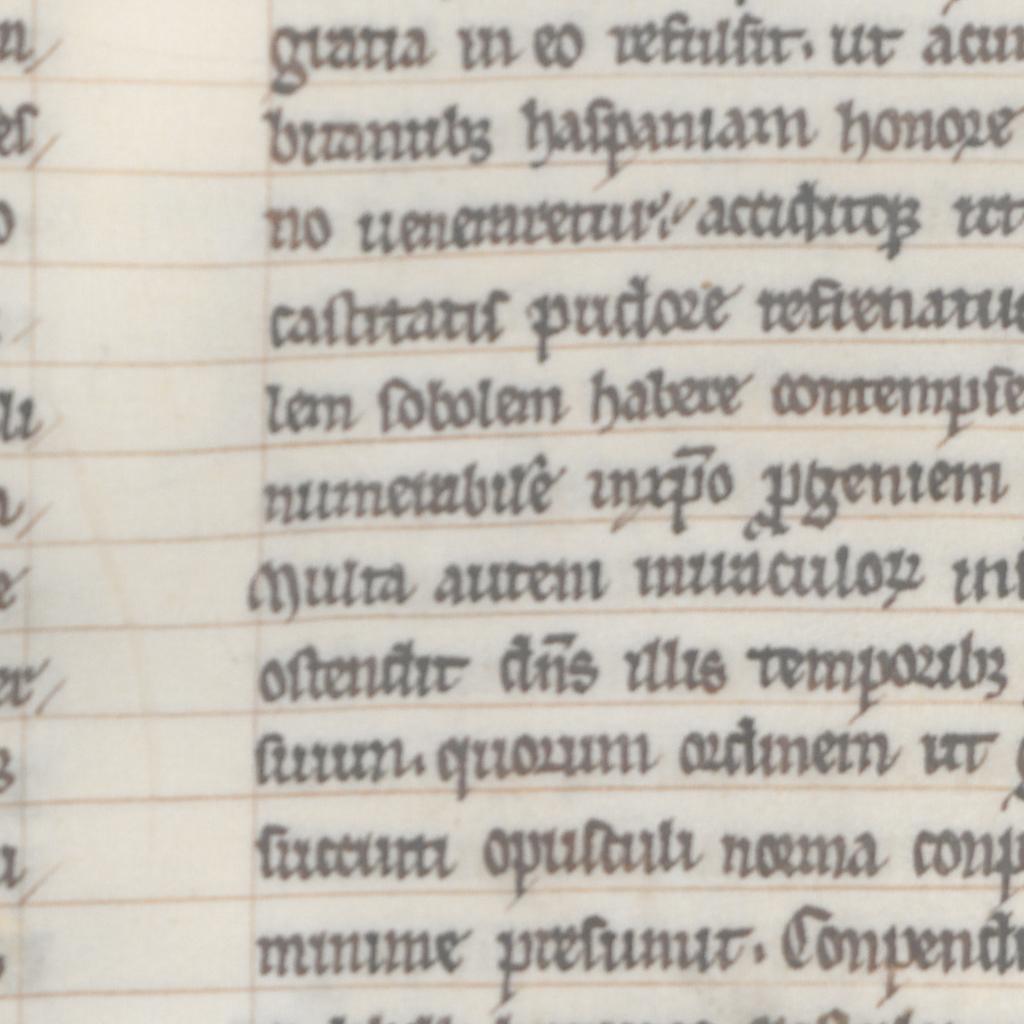 gratia in eo refulsit. ut a cun
bitantibꝫ haspaniam honore
no ueneraretur. acciditqꝫ ut
castitatis pudore refrenatus
lem sobolem habere contempse
numerabilē in xp̄o ꝓgeniem
Multa autem miraculoꝝ in
ostendit dn̄s illis temporibꝫ
suum. quorum ordinem ut
succinti opusculi norma conp
minime presumit. Conpendi